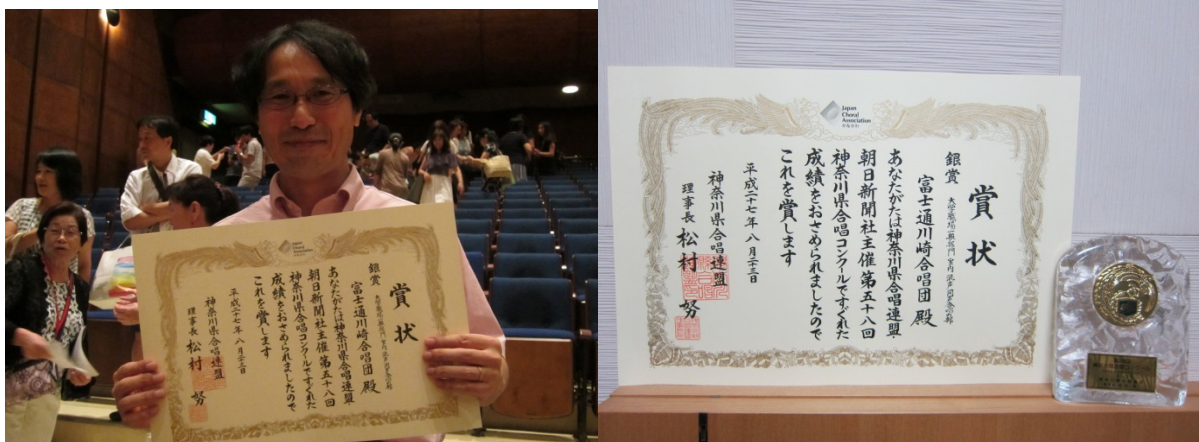 Japan
Choral
Association
賞状
銀賞
富士通川崎合唱団 殿
あなたがたは神奈川県合唱連盟・
朝日新聞社主催第五十八回
神奈川県合唱コンクールですぐれた
成績をおさめられましたので
これを賞します
平成二十七年八月二十三日
神奈川県合唱連盟
理事長 松村 努
Japan
Choral
Association
かながわ
賞状
銀賞
大学職場一般部門 室内混声合唱の部
富士通川崎合唱団 殿
あなたがたは神奈川県合唱連盟・
朝日新聞社主催第五十八回
神奈川県合唱コンクールですぐれた
成績をおさめられましたので
これを賞します
平成二十七年八月二十三日
神奈川県合唱連盟
理事長 松村 努